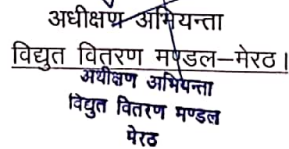 अधीक्षण अभियन्ता
विद्युत वितरण मण्डल–मेरठ।
अधीक्षण अभियन्ता
विद्युत वितरण मण्डल
मेरठ